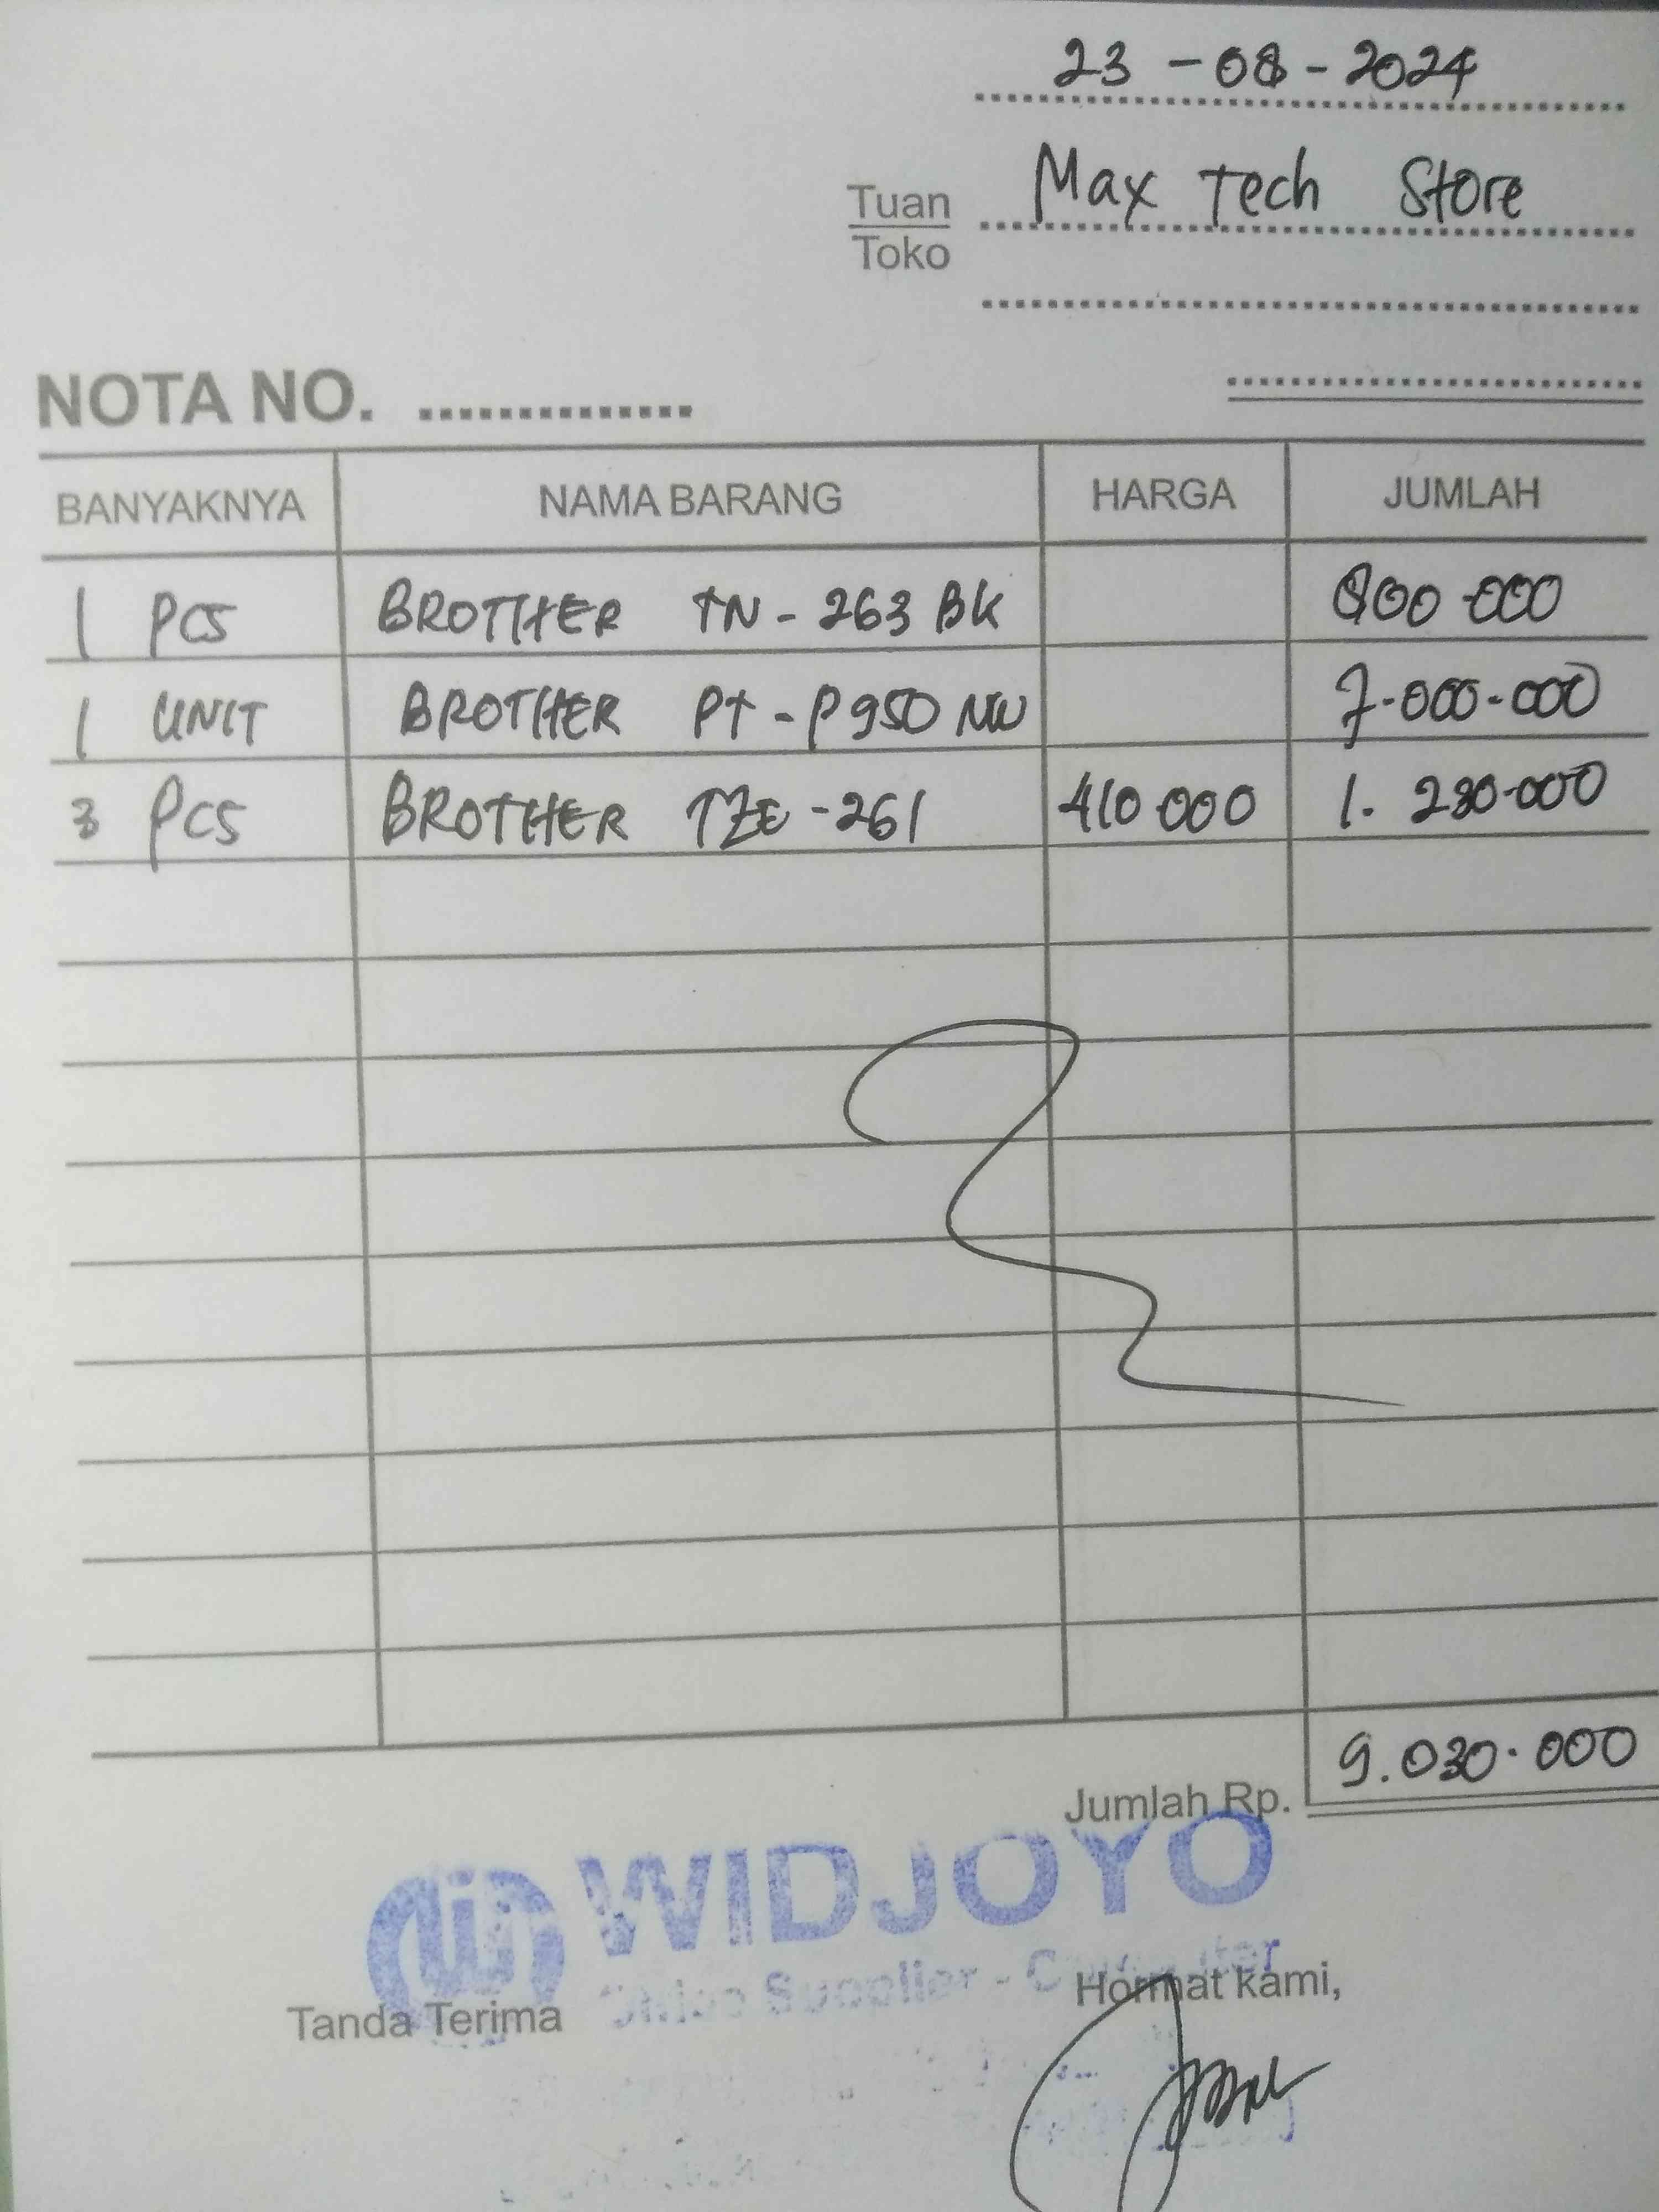 23 - 08 - 2024
Tuan Max Tech Store
Toko
NOTA NO. ..............
BANYAKNYA NAMA BARANG HARGA JUMLAH
1 PCS BROTHER TN - 263 BK 800.000
1 UNIT BROTHER PT - P950 NW 7.000.000
3 PCS BROTHER TZE - 261 410.000 1.230.000
Jumlah Rp. 9.030.000
WIDJOYO
Supplier - Computer
Tanda Terima Hormat kami,